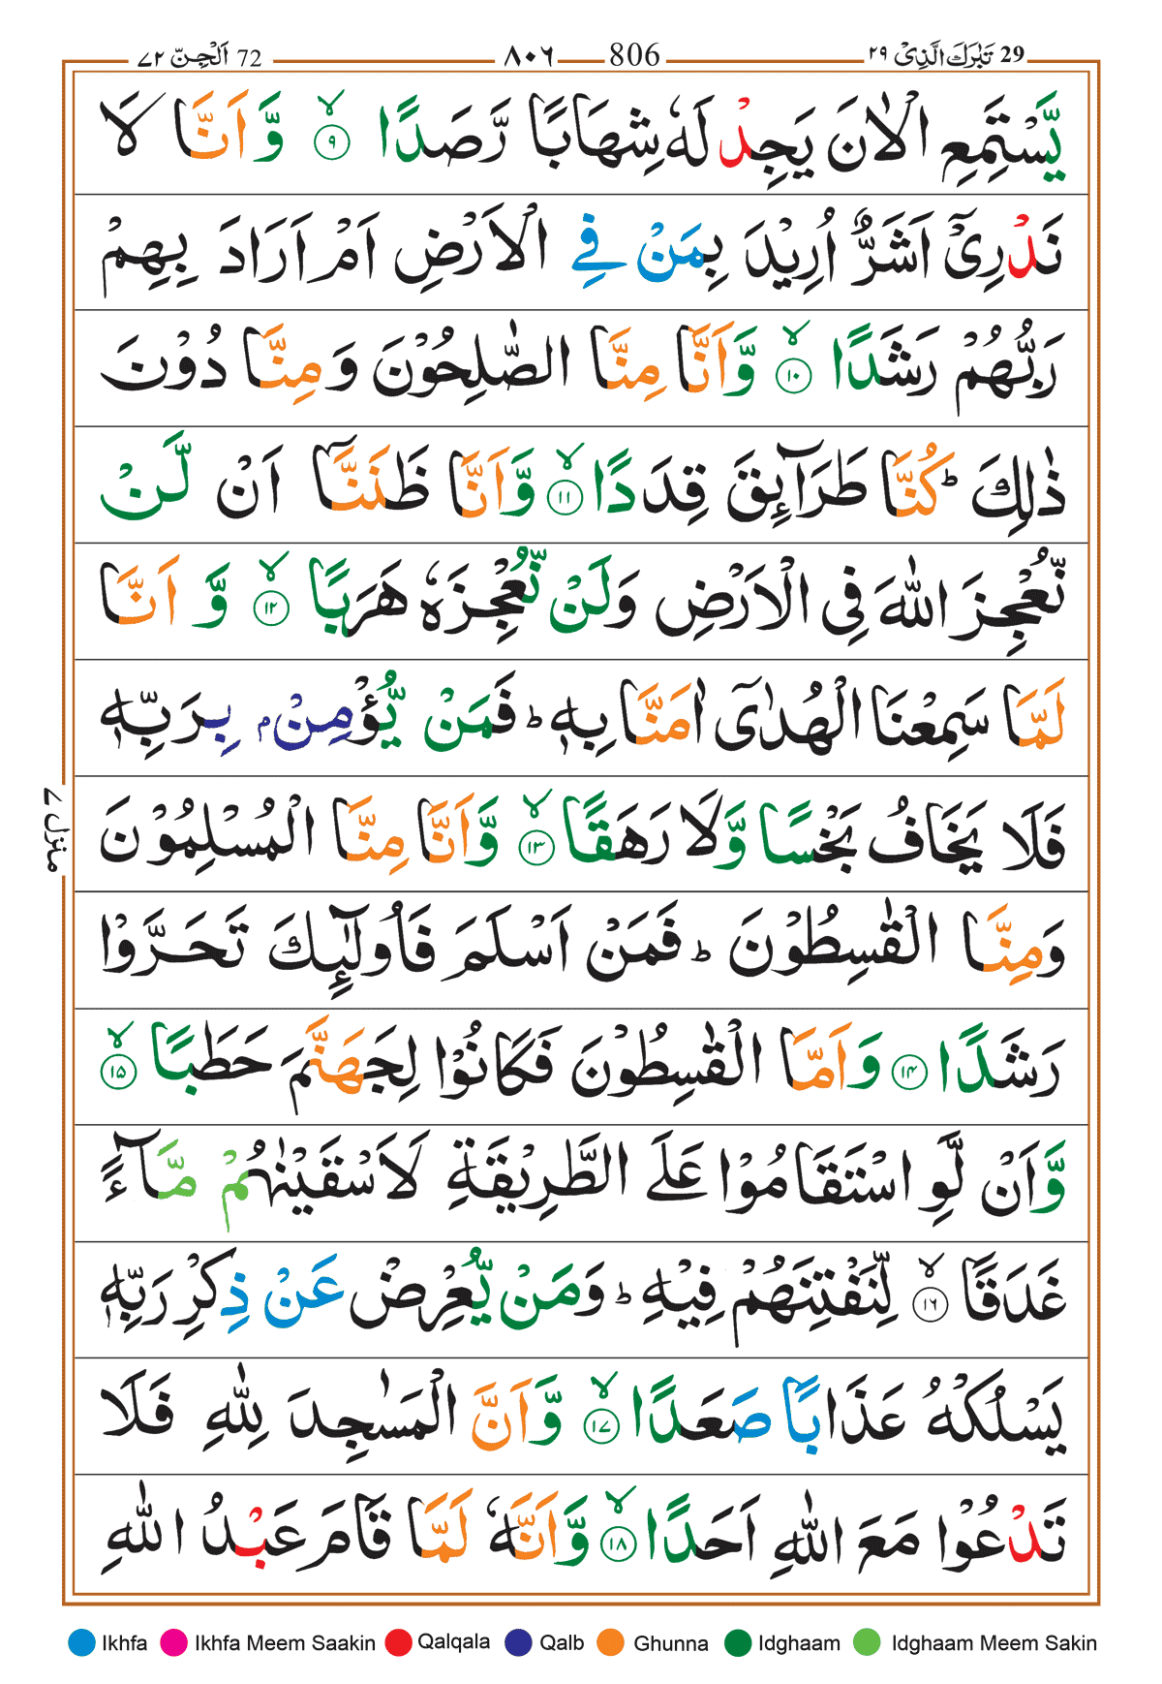 29 تَبٰرَكَ الَّذِیْ ٢٩ 806 ٨٠٦ 72 اَلْجِنّ ٧٢
یَّسْتَمِعِ الْاٰنَ یَجِدْ لَهٗ شِهَابًا رَّصَدًا ۙ﴿٩﴾ وَّاَنَّا لَا
نَدْرِیْۤ اَشَرٌّ اُرِیْدَ بِمَنْ فِی الْاَرْضِ اَمْ اَرَادَ بِهِمْ
رَبُّهُمْ رَشَدًا ۙ﴿١٠﴾ وَّاَنَّا مِنَّا الصّٰلِحُوْنَ وَمِنَّا دُوْنَ
ذٰلِكَ ؕ كُنَّا طَرَآئِقَ قِدَدًا ۙ﴿١١﴾ وَّاَنَّا ظَنَنَّاۤ اَنْ لَّنْ
نُّعْجِزَ اللّٰهَ فِی الْاَرْضِ وَلَنْ نُّعْجِزَهٗ هَرَبًا ۙ﴿١٢﴾ وَّ اَنَّا
لَمَّا سَمِعْنَا الْهُدٰۤی اٰمَنَّا بِهٖ ؕ فَمَنْ یُّؤْمِنْۢ بِرَبِّهٖ
فَلَا یَخَافُ بَخْسًا وَّلَا رَهَقًا ۙ﴿١٣﴾ وَّاَنَّا مِنَّا الْمُسْلِمُوْنَ
وَمِنَّا الْقٰسِطُوْنَ ؕ فَمَنْ اَسْلَمَ فَاُولٰٓئِكَ تَحَرَّوْا
رَشَدًا ﴿١٤﴾ وَاَمَّا الْقٰسِطُوْنَ فَكَانُوْا لِجَهَنَّمَ حَطَبًا ۙ﴿١٥﴾
وَّاَنْ لَّوِ اسْتَقَامُوْا عَلَی الطَّرِیْقَةِ لَاَسْقَیْنٰهُمْ مَّآءً
غَدَقًا ۙ﴿١٦﴾ لِّنَفْتِنَهُمْ فِیْهِ ؕ وَمَنْ یُّعْرِضْ عَنْ ذِكْرِ رَبِّهٖ
یَسْلُكْهُ عَذَابًا صَعَدًا ۙ﴿١٧﴾ وَّاَنَّ الْمَسٰجِدَ لِلّٰهِ فَلَا
تَدْعُوْا مَعَ اللّٰهِ اَحَدًا ۙ﴿١٨﴾ وَّاَنَّهٗ لَمَّا قَامَ عَبْدُ اللّٰهِ
منزل ٧
Ikhfa Ikhfa Meem Saakin Qalqala Qalb Ghunna Idghaam Idghaam Meem Sakin